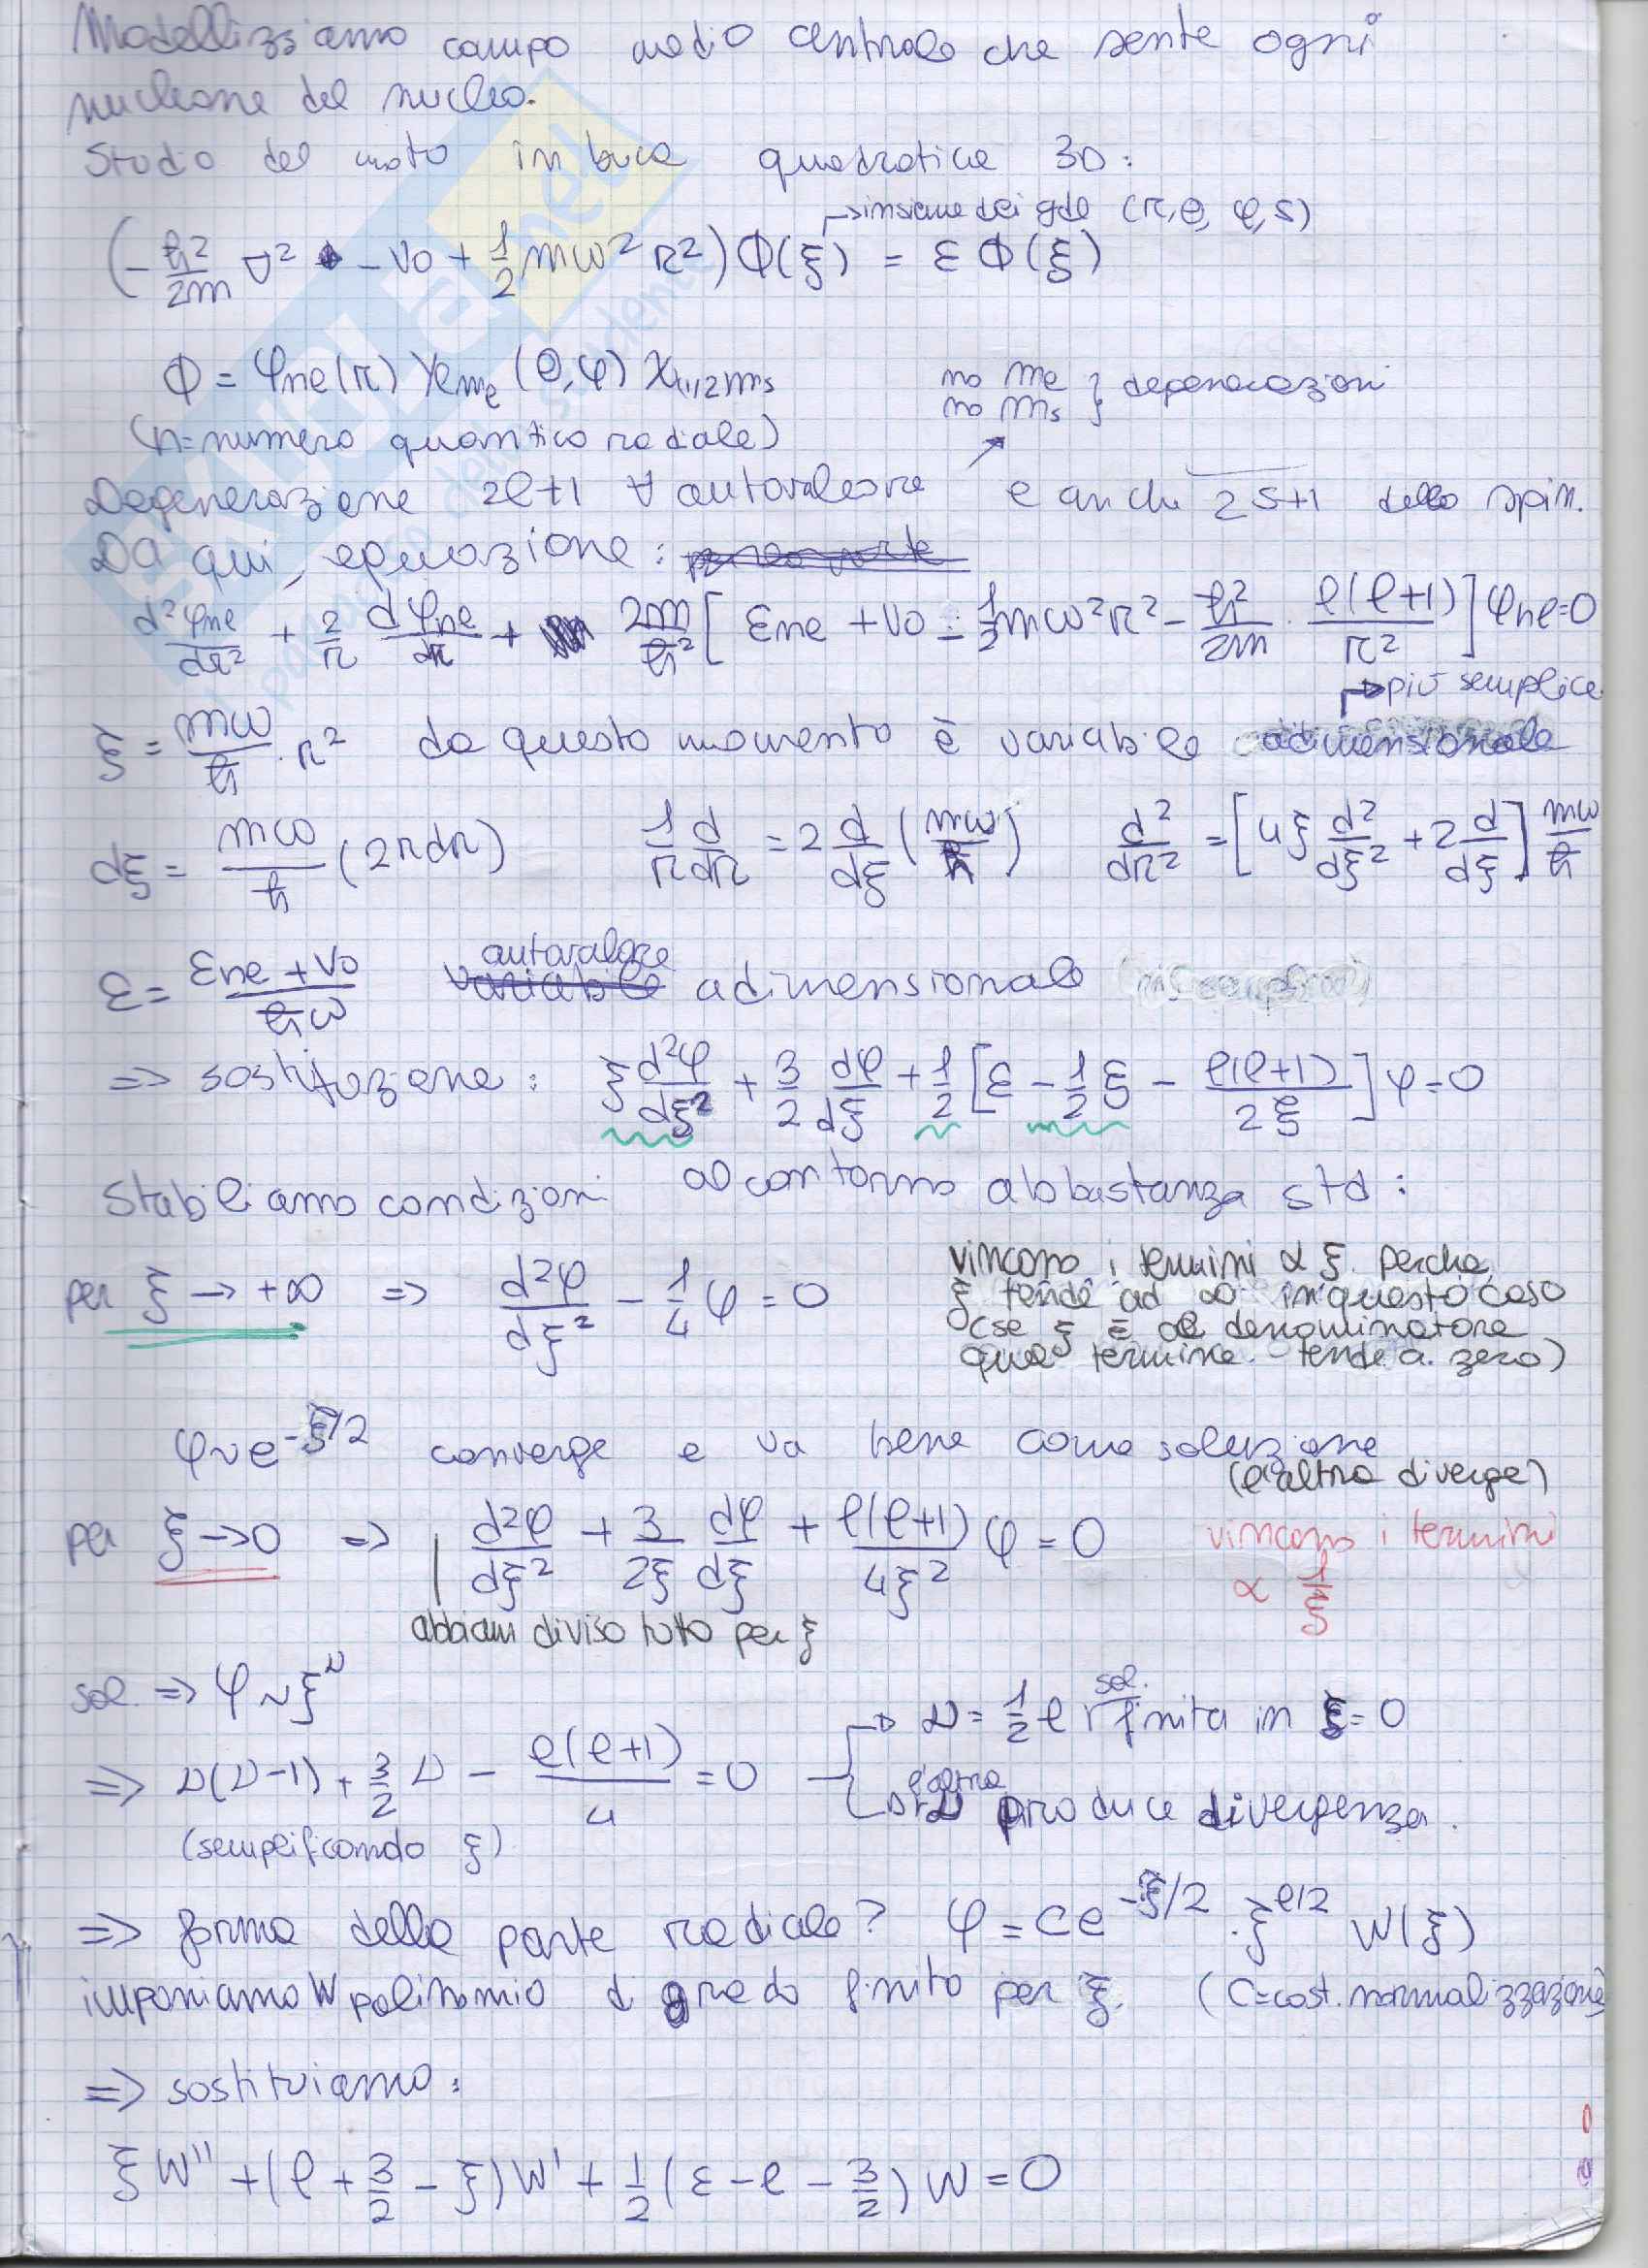 Modellizziamo campo medio centrale che sente ogni
nucleone del nucleo.
Studio del moto in buca quadratica 3D:
→ insieme dei gdl (r, θ, φ, s)
(-ℏ²/2m ∇² - V₀ + 1/2 mω²r²) Φ(ξ) = ε Φ(ξ)
Φ = φnl(r) Ylml (θ,φ) χ1/2ms
no ml } degenerazioni
no ms
(n=numero quantico radiale)
Degenerazione 2l+1 ∀ autovalore e anche 2s+1 dello spin.
Da qui, equazione:
d²φnl/dr² + 2/r dφnl/dr + 2m/ℏ² [ εnl + V₀ - 1/2 mω²r² - ℏ²/2m · l(l+1)/r² ] φnl = 0
→ più semplice
ξ = mω/ℏ · r² da questo momento è variabile adimensionale
dξ = mω/ℏ (2rdr) 1/r d/dr = 2 d/dξ (mω/ℏ) d²/dr² = [4ξ d²/dξ² + 2 d/dξ] mω/ℏ
ε = εnl + V₀/ℏω autovalore adimensionale
=> sostituzione: ξ d²φ/dξ² + 3/2 dφ/dξ + 1/2 [ε - 1/2 ξ - l(l+1)/2ξ] φ = 0
Stabiliamo condizioni al contorno abbastanza std:
per ξ → +∞ => d²φ/dξ² - 1/4 φ = 0
vincono i termini ∝ ξ perché
ξ tende ad ∞ in questo caso
(se ξ è al denominatore
quel termine tende a zero)
φ ~ e^-ξ/2 converge e va bene come soluzione
(l'altra diverge)
per ξ → 0 => d²φ/dξ² + 3/2ξ dφ/dξ + l(l+1)/4ξ² φ = 0
vincono i termini
∝ 1/ξ
abbiam diviso tutto per ξ
sol. => φ ~ ξ^ν
=> ν(ν-1) + 3/2 ν - l(l+1)/4 = 0
→ ν = 1/2 l sol. finita in ξ = 0
→ l'altra ν produce divergenza.
(semplificando ξ)
=> forma della parte radiale? φ = C e^-ξ/2 · ξ^l/2 W(ξ)
imponiamo W polinomio di grado finito per ξ. (C=cost. normalizzazione)
=> sostituiamo:
ξ W'' + (l + 3/2 - ξ) W' + 1/2 (ε - l - 3/2) W = 0